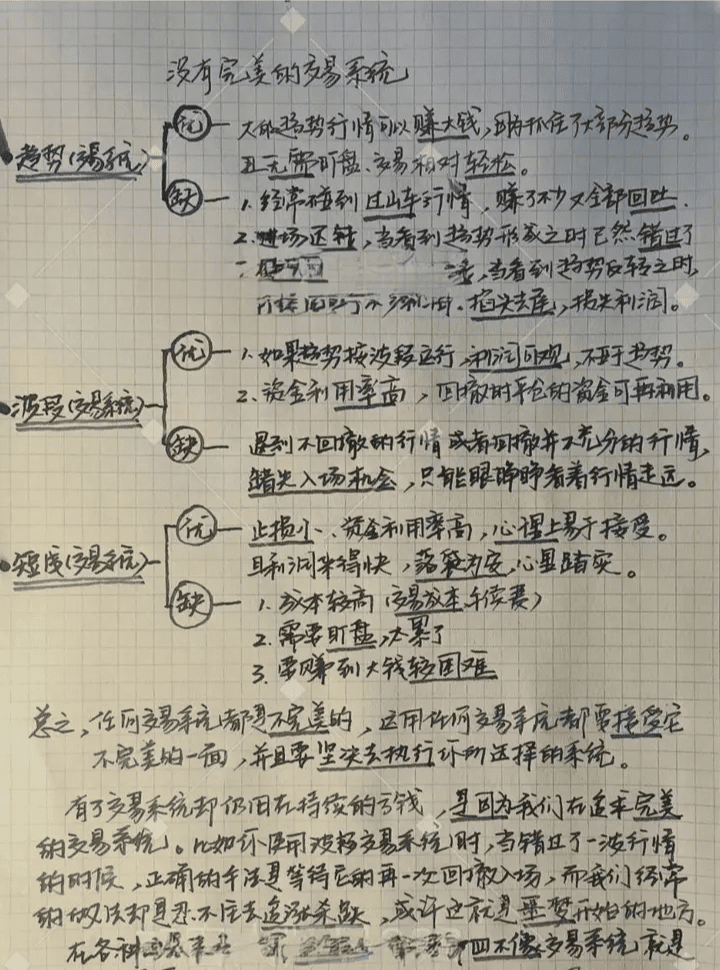 没有完美的交易系统
趋势(交易系统)
优
大的趋势行情可以赚大钱,因为抓住了大部分趋势。
且无需盯盘、交易相对轻松。
缺
1.经常碰到过山车行情,赚了不少又全部回吐.
2.进场迟钝,当看到趋势形成之时已然错过了
,当看到趋势反转之时,
掐头去尾,损失利润。
波段(交易系统)
优
1.如果趋势按波段运行,利润可观,不亚于趋势。
2、资金利用率高,回撤时平仓的资金可再利用。
缺
遇到不回撤的行情或者回撤并不充分的行情,
错失入场机会,只能眼睁睁看着行情走远。
短线(交易系统)
优
止损小、资金利用率高,心理上易于接受。
且利润来得快,落袋为安,心里踏实。
缺
1.成本较高(交易成本,手续费)
2.需要盯盘,太累了
3.要赚到大钱较困难
总之,任何交易系统都是不完美的,运用任何交易系统都要接受它
不完美的一面,并且要坚决去执行你所选择的系统。
有了交易系统却仍旧在持续的亏钱,是因为我们在追求完美
的交易系统。比如你使用波段交易系统时,当错过了一波行情
的时候,正确的手法是等待它的再一次回撤入场,而我们经常
的做法却是忍不住去追涨杀跌,或许这就是噩梦开始的地方。
在各种
四不像交易系统就是